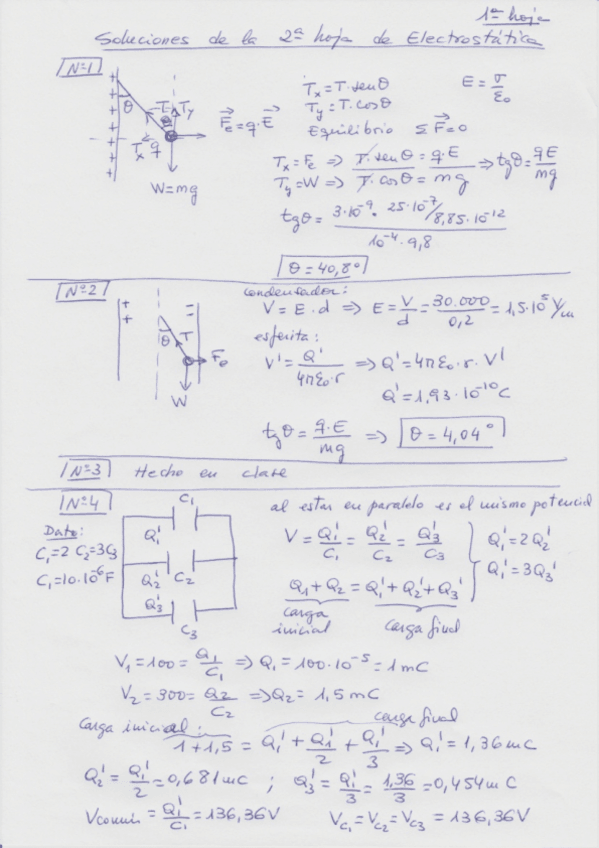 1ª hoja
Soluciones de la 2ª hoja de Electrostática
Nº1
θ
T Ty
θ
Tx q
Fe = q·E
W=mg
Tx = T·senθ
Ty = T·cosθ
E = σ/ε₀
Equilibrio ΣF=0
Tx = Fe ⇒ T·senθ = q·E
Ty = W ⇒ T·cosθ = mg
⇒ tgθ = qE/mg
tgθ = 3·10⁻⁹·25·10⁻⁷/8,85·10⁻¹² / 10⁻⁴·9,8
θ = 40,8°
Nº2
θ T
Fe
W
condensador:
V = E·d ⇒ E = V/d = 30.000/0,2 = 1,5·10⁵ V/m
esferita:
V' = Q'/4πε₀·r ⇒ Q' = 4πε₀·r·V'
Q' = 1,93·10⁻¹⁰ C
tgθ = q·E/mg ⇒ θ = 4,04°
Nº3 Hecho en clase
Nº4
C₁
Q₁'
C₂
Q₂'
Q₃'
C₃
Dato:
C₁=2 C₂=3C₃
C₁=10·10⁻⁶F
al estar en paralelo es el mismo potencial
V = Q₁'/C₁ = Q₂'/C₂ = Q₃'/C₃
Q₁' = 2Q₂'
Q₁' = 3Q₃'
Q₁+Q₂ = Q₁'+Q₂'+Q₃'
carga inicial
carga final
V₁=100= Q₁/C₁ ⇒ Q₁ = 100·10⁻⁵ = 1 mC
V₂=300= Q₂/C₂ ⇒ Q₂ = 1,5 mC
Carga inicial: carga final
1+1,5 = Q₁' + Q₁'/2 + Q₁'/3 ⇒ Q₁' = 1,36 mC
Q₂' = Q₁'/2 = 0,681 mC ; Q₃' = Q₁'/3 = 1,36/3 = 0,454 m C
Vcomún = Q₁'/C₁ = 136,36V Vc₁ = Vc₂ = Vc₃ = 136,36V